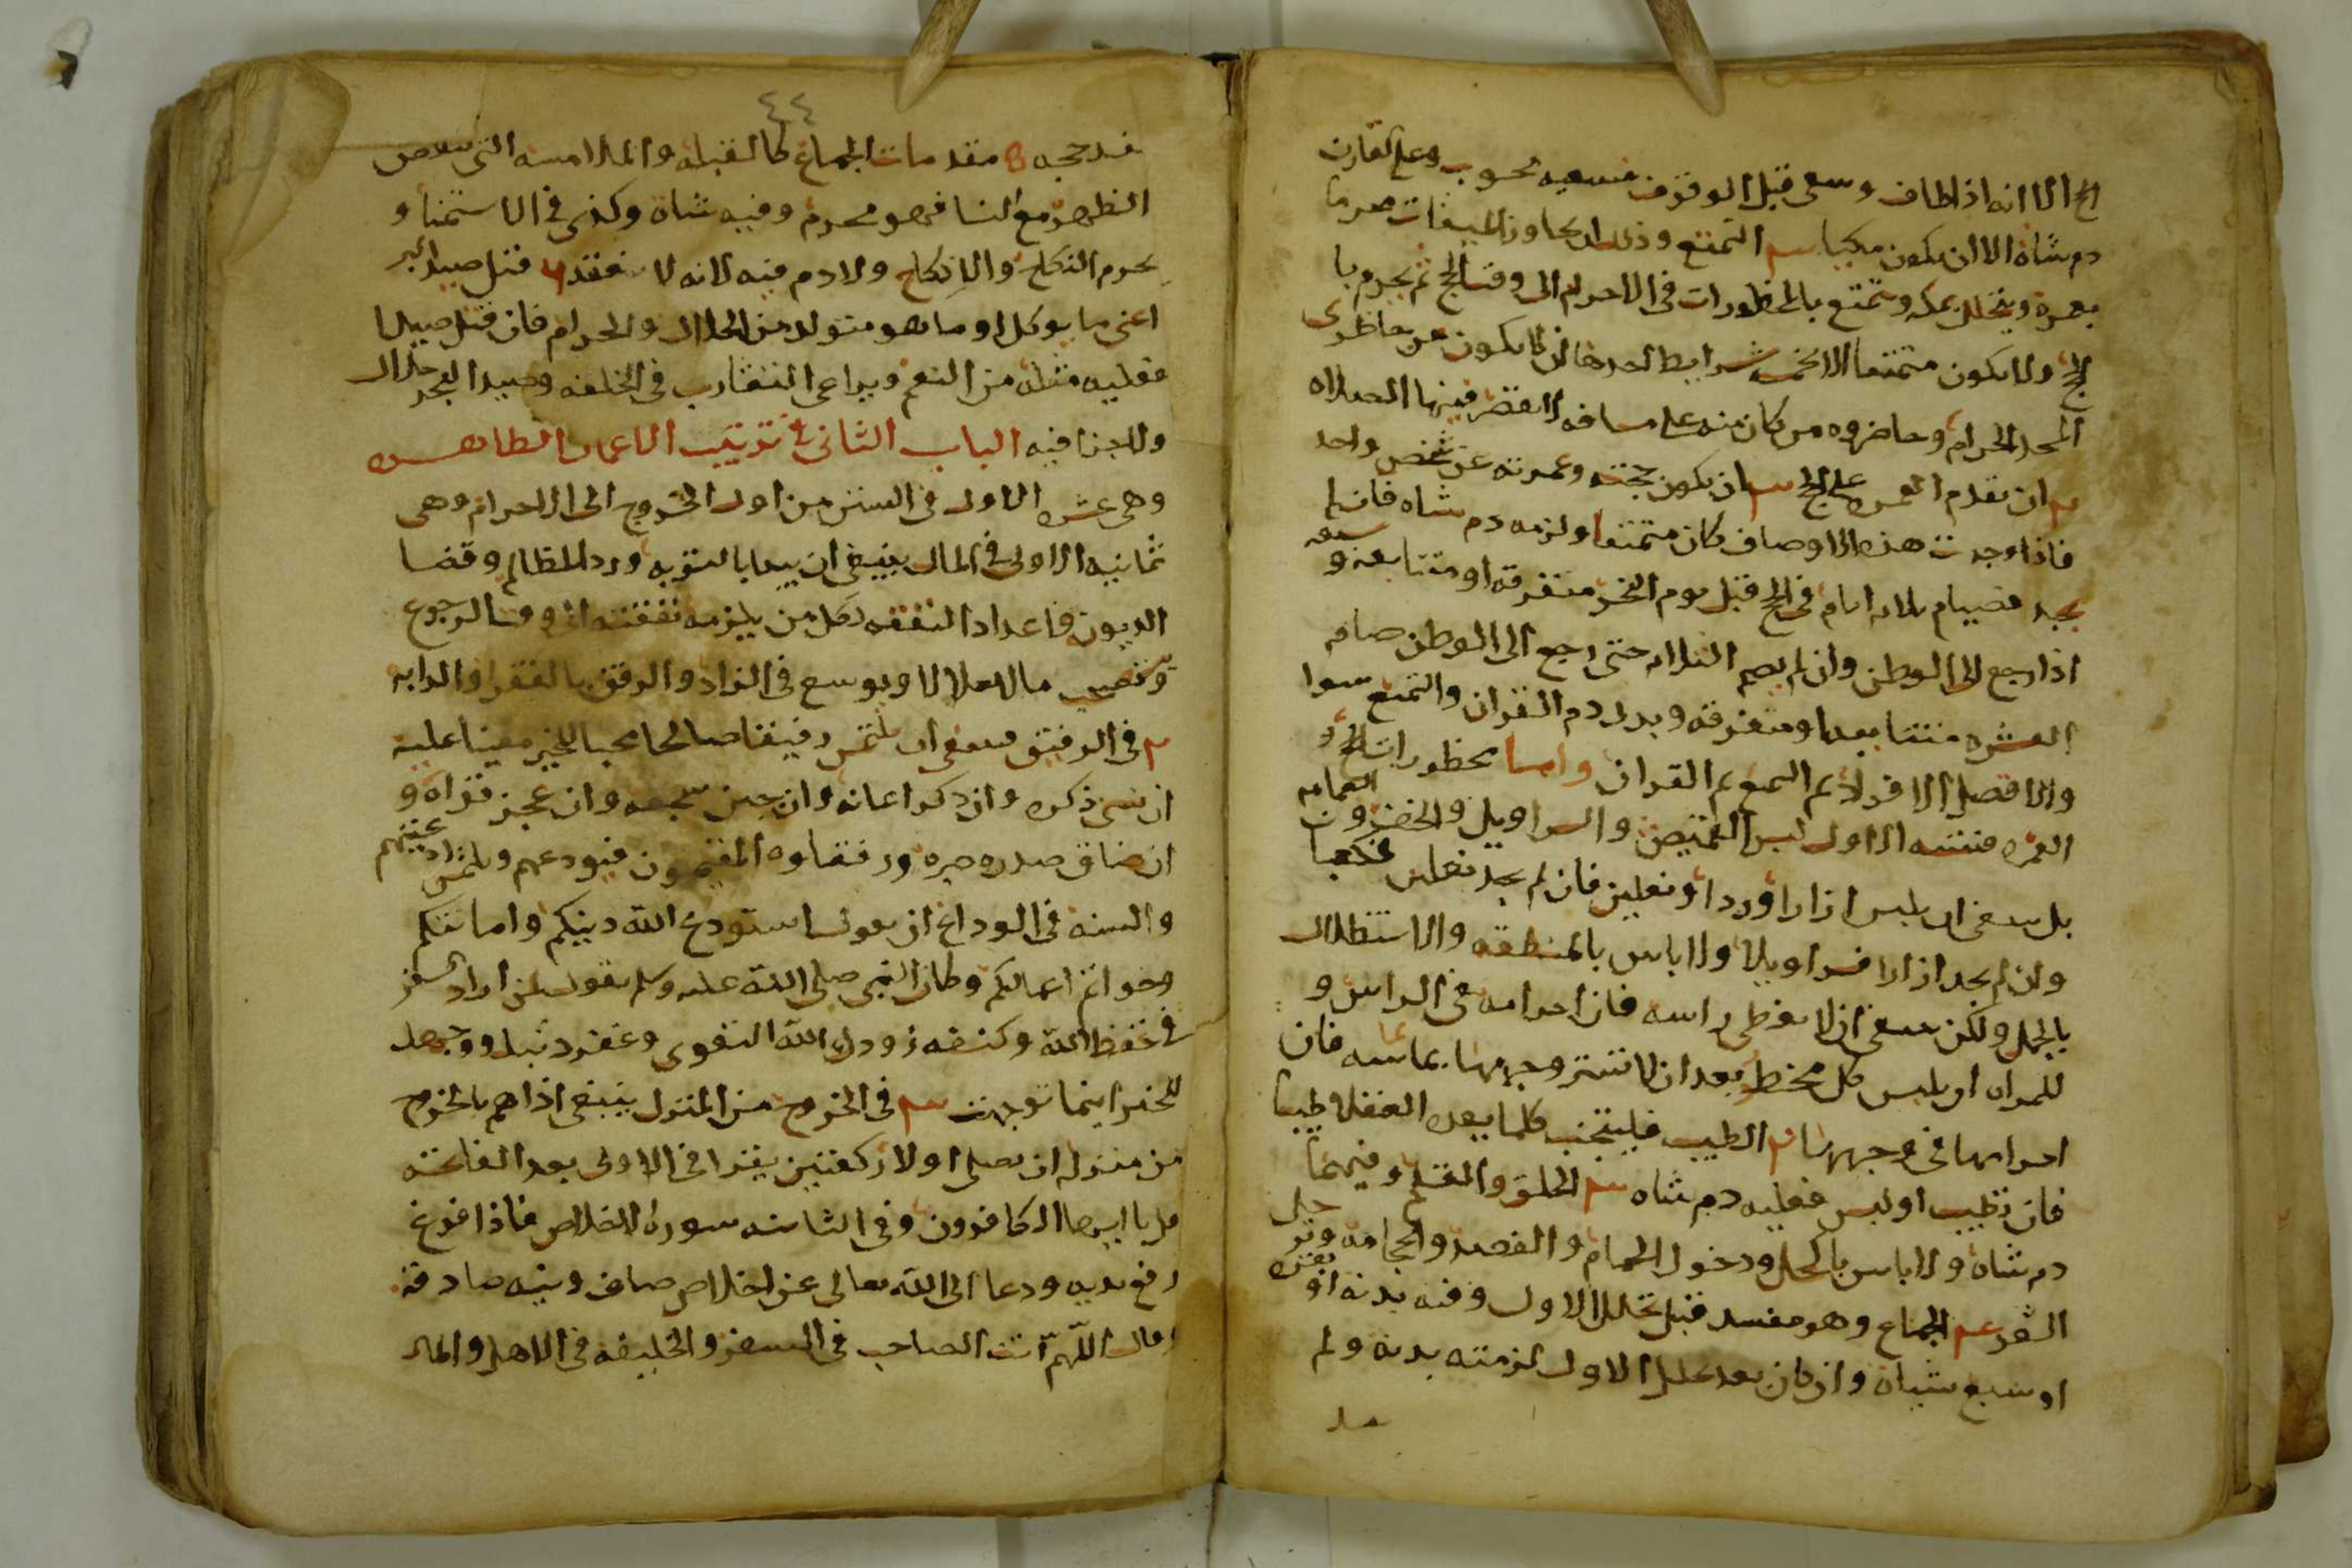 الحج الا انه اذا طاف وسعى قبل الوقوف فسعيه محسوب وعلى القارن
دم شاة الا ان يكون مكيا سم التمتع وذلك ان يجاوز الميقات محرما
بعمرة ويتحلل بمكه ويتمتع بالمحظورات في الاحرام الى وقت الحج ثم يحرم با
لحج ولا يكون متمتعا الا بخمس شرايط احدها ان لا يكون من حاضري
المسجد الحرام وحاضروه من كان منه على مسافه لا تقصر فيها الصلاه
ان يقدم العمره على الحج ان يكون حجته وعمرته عن شخص واحد
فاذا وجدت هذه الاوصاف كان متمتعا ولزمه دم شاه فان لم
يجد فصيام ثلاثه ايام في الحج قبل يوم النحر متفرقة او متتابعة و سبعه
اذا رجع الى الوطن وان لم يصم الثلاثه حتى رجع الى الوطن صام
العشره متتابعا ومتفرقه وبدل دم القران والتمتع سوا
والافضل الافراد ثم التمتع ثم القران واما محظورات الحج و
العمره فستته الاول لبس القميص والسراويل والخف و العمامه
بل ينبغي ان يلبس ازارا وردا ونعلين فان لم يجد نعلين فمكعبا
وان لم يجد ازارا فسراويلا ولا باس بالمنطقه والاستظلال
بالمحمل ولكن ينبغي ان لا يغطي راسه فان احرامه في الراس و
للمراه ان يلبس كل مخيط بعد ان لا تستر وجهها بما يماسه فان
احرامها في وجهها الطيب فليتجنب كلما يعده العقلا طيبا
فان تطيب او لبس فعليه دم شاه سم الحلق والقلم وفيهما
دم شاة ولا باس بالكحل ودخول الحمام والفصد والحجامه وترجيل
الشعر الجماع وهو مفسد قبل تحلل الاول وفيه بدنة او بقرة
او سبع شياه وان كان بعد تحلل الاول لزمته بدنه ولم
٤٤
يفسد حجه مقدمات الجماع كالقبله والملامسه التي تنقص
الطهر مع النسا فهو محرم وفيه شاة وكذى في الاستمنا و
يحرم النكاح والانكاح ولا دم فيه لانه لا ينعقد قتل صيد البر
اعني ما يوكل او ما هو متولد من الحلال والحرام فان قتل صيدا
فعليه مثله من النعم ويراعى التقارب في الخلقه وصيد البحر حلال
ولا جزا فيه الباب الثاني في ترتيب الاعمال الظاهره
وهي عشره الاول في السنن من اول الخروج الى الاحرام وهي
ثمانيه الاولى في المال ينبغي ان يبدا بالتوبه ورد المظالم وقضا
الديون واعداد النفقه لكل من يلزمه نفقته الى وقت الرجوع
ويستصحب مالا حلالا ويوسع في الزاد والرفق بالفقرا والدابه
في الرفيق ينبغي ان يلتمس رفيقا صالحا محبا للخير معينا عليه
ان نسى ذكره وان ذكر اعانه وان جبن شجعه وان عجز قواه و
ان ضاق صدره صبره ورفقاوه المقيمون فيودعهم ويلتمس ادعيتهم
والسنه في الوداع ان يقول استودع الله دينكم وامانتكم
وخواتم اعمالكم وكان النبي صلى الله عليه وسلم يقول لمن اراد السفر
في حفظ الله وكنفه زودك الله التقوى وغفر ذنبك ووجهك
للخير اينما توجهت سم في الخروج من المنزل ينبغي اذا هم بالخروج
من منزله ان يصلى اولا ركعتين يقرا في الاولى بعد الفاتحته
قل يا ايها الكافرون وفي الثانيه سورة الاخلاص فاذا فرغ
رفع يديه ودعا الى الله تعالى عن اخلاص صاف ونيه صادقة
وقال اللهم انت الصاحب في السفر والخليفه في الاهل والمال